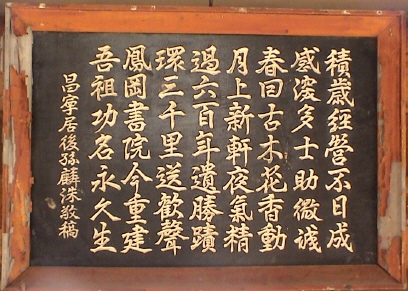 積歲經營不日成
感深多士助微誠
春回古木花香動
月上新軒夜氣精
過六百年遺勝蹟
環三千里送歡聲
鳳岡書院今重建
吾祖功名永久生
昌寧居後孫 洙敬稿